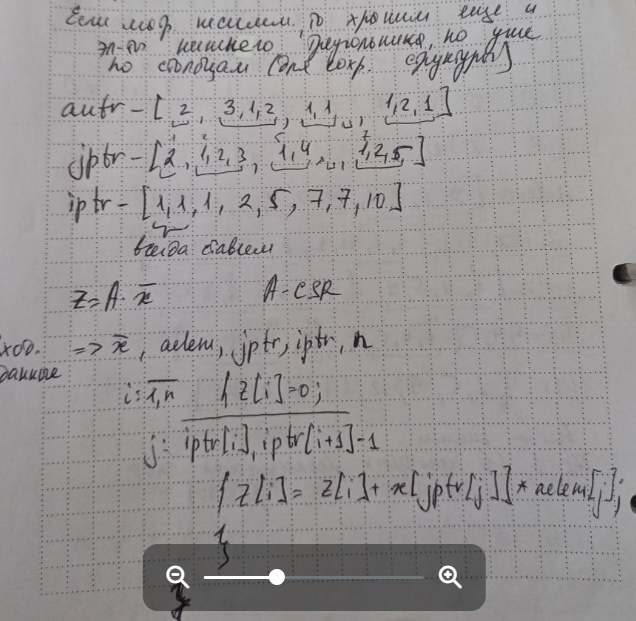 Если мтр. несимм., то храним еще и
эл-ты нижнего треугольника, но уже
по столбцам (для сохр. структуры)
autr - [2, 3,1,2, 1,1, , 1,2,1]
jptr - [2, 1,2,3, 1,4, , 1,2,5,]
1 2 5 7
iptr - [1,1, 1, 2, 5, 7, 7, 10]
всегда ставим
z = A · x̄ A - CSR
вход. данные => x̄, aelem, jptr, iptr, n
i: 1,n { z[i]=0;
j: iptr[i], iptr[i+1]-1
{ z[i] = z[i] + x[jptr[j]] * aelem[j];
}
}